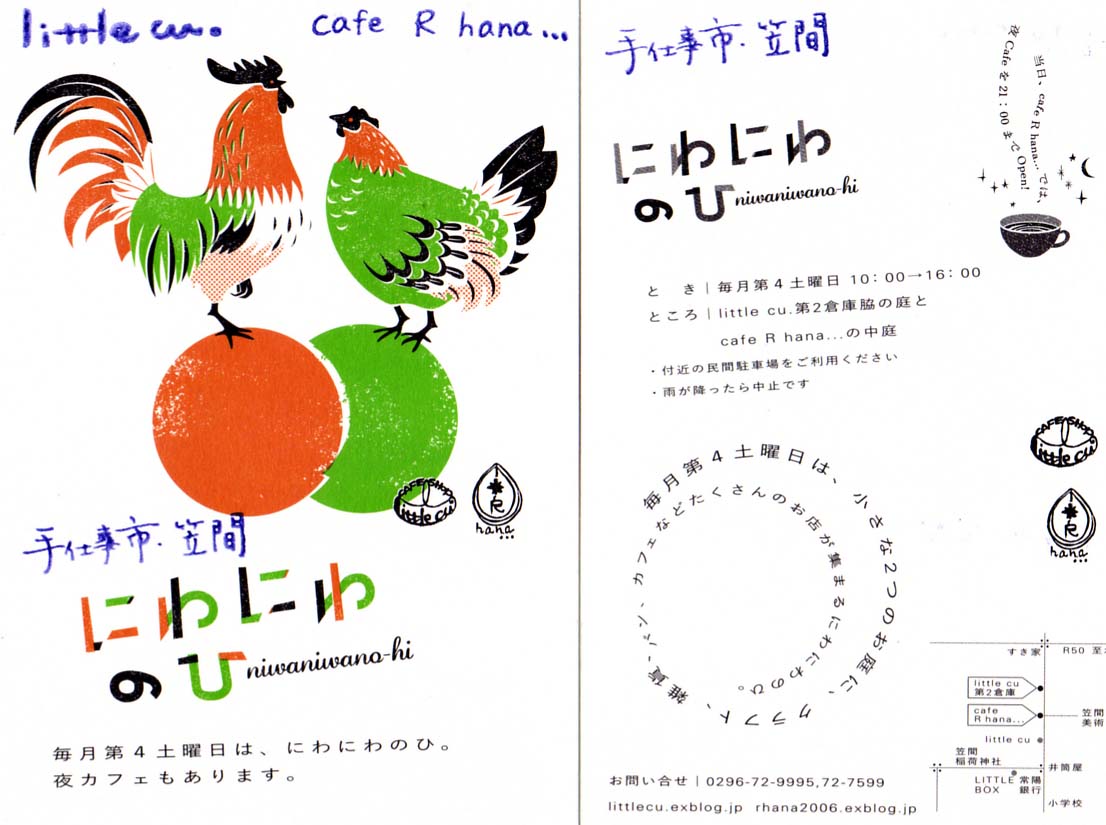 little cu.
cafe R hana...
CAFE SHOP
little cu
R
hana...
手仕事市・笠間
にわにわ
のひ niwaniwano-hi
毎月第4土曜日は、にわにわのひ。
夜カフェもあります。
手仕事市・笠間
にわにわ
のひ niwaniwano-hi
当日、cafe R hana...では、
夜Cafeを21:00までOpen!
とき｜毎月第4土曜日 10:00→16:00
ところ｜little cu.第2倉庫脇の庭と
cafe R hana...の中庭
・付近の民間駐車場をご利用ください
・雨が降ったら中止です
CAFE SHOP
little cu
R
hana...
毎月第4土曜日は、小さな2つのお庭に、クラフト、雑貨、パン、カフェなどたくさんのお店が集まるにわにわのひ。
すき家
R50 至
little cu
第2倉庫
cafe
R hana...
笠間
美術
little cu
笠間
稲荷神社
井筒屋
LITTLE
BOX
常陽
銀行
小学校
お問い合せ｜0296-72-9995,72-7599
littlecu.exblog.jp rhana2006.exblog.jp